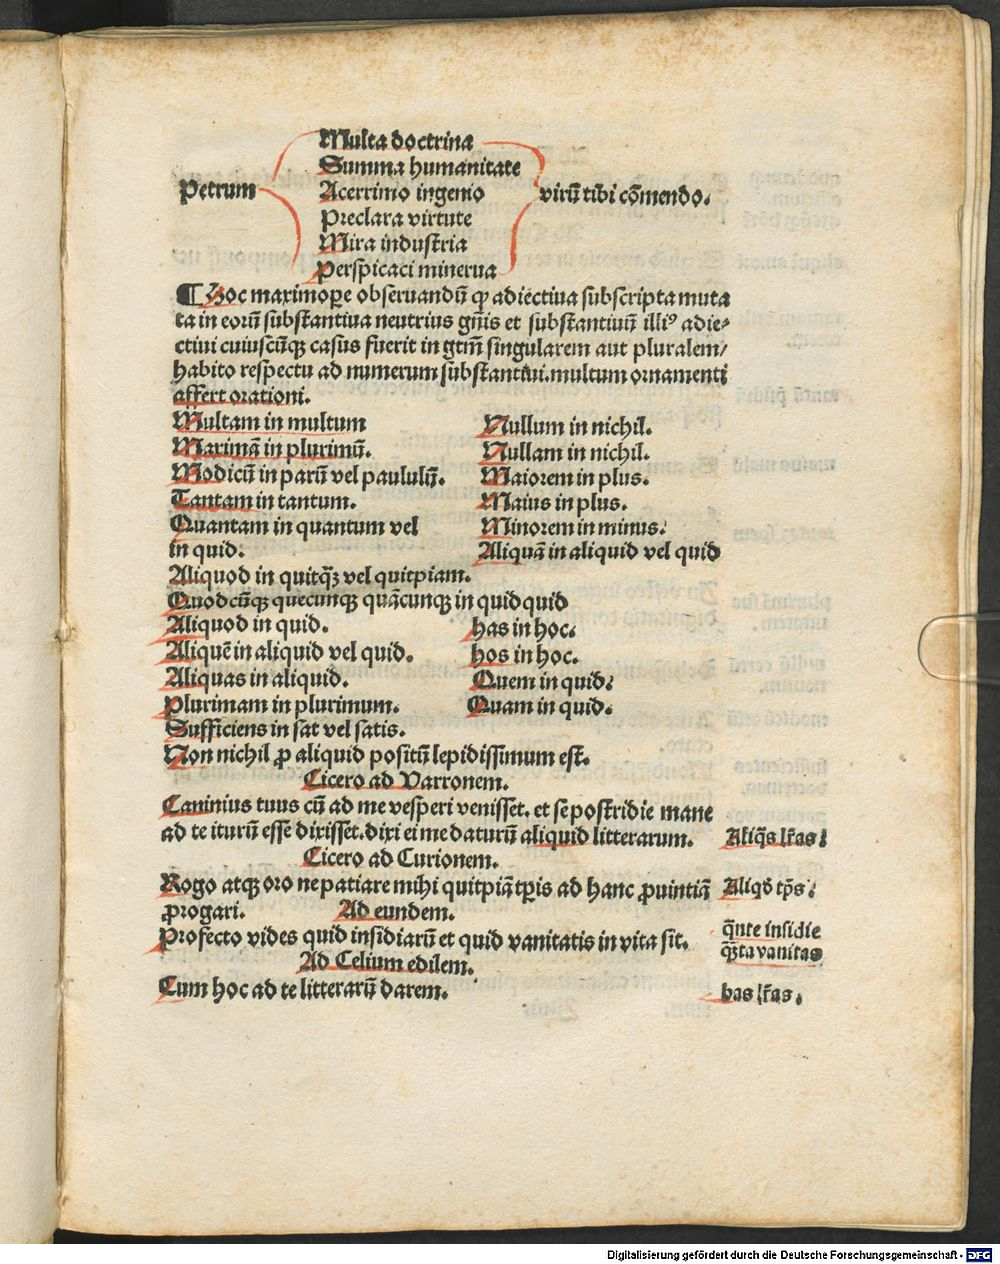 Multa doctrina
Summa humanitate
Petrum Acerrimo ingenio virũ tibi cõmendo.
Preclara virtute
Mira industria
Perspicaci minerua
¶ Hoc maximopere obseruandũ ꝙ adiectiua subscripta muta
ta in eorũ substantiua neutrius gñis et substantiuũ illiꝰ adie⸗
ctiui cuiuscũqꝫ casus fuerit in gtm̃ singularem aut pluralem/
habito respectu ad numerum substantiui. multum ornamenti
affert orationi.
Multam in multum Nullum in nichil.
Maximã in plurimũ. Nullam in nichil.
Modicũ in parũ vel paululũ. Maiorem in plus.
Tantam in tantum. Maius in plus.
Quantam in quantum vel Minorem in minus.
in quid. Aliquã in aliquid vel quid
Aliquod in quitq̃ꝫ vel quitpiam.
Quodcũqꝫ quecunqꝫ quãcunqꝫ in quidquid
Aliquod in quid. has in hoc.
Aliquẽ in aliquid vel quid. hos in hoc.
Aliquas in aliquid. Quem in quid.
Plurimam in plurimum. Quam in quid.
Sufficiens in sat vel satis.
Non nichil ꝓ aliquid positũ lepidissimum est.
Cicero ad Varronem.
Caninius tuus cũ ad me vesperi venisset. et se postridie mane
ad te iturũ esse dixisset. dixi ei me daturũ aliquid litterarum. Aliq̃s lr̃as.
Cicero ad Curionem.
Rogo atqꝫ oro ne patiare mihi quitpiã tꝑis ad hanc ꝓuintiã Aliqd̾ tp̃s.
ꝓrogari. Ad eundem.
Profecto vides quid insidiarũ et quid vanitatis in vita sit. q̃nte insidie
q̃ꝫta vanitas
Ad Celium edilem.
Cum hoc ad te litterarũ darem. has lr̃as.
Digitalisierung gefördert durch die Deutsche Forschungsgemeinschaft - DFG